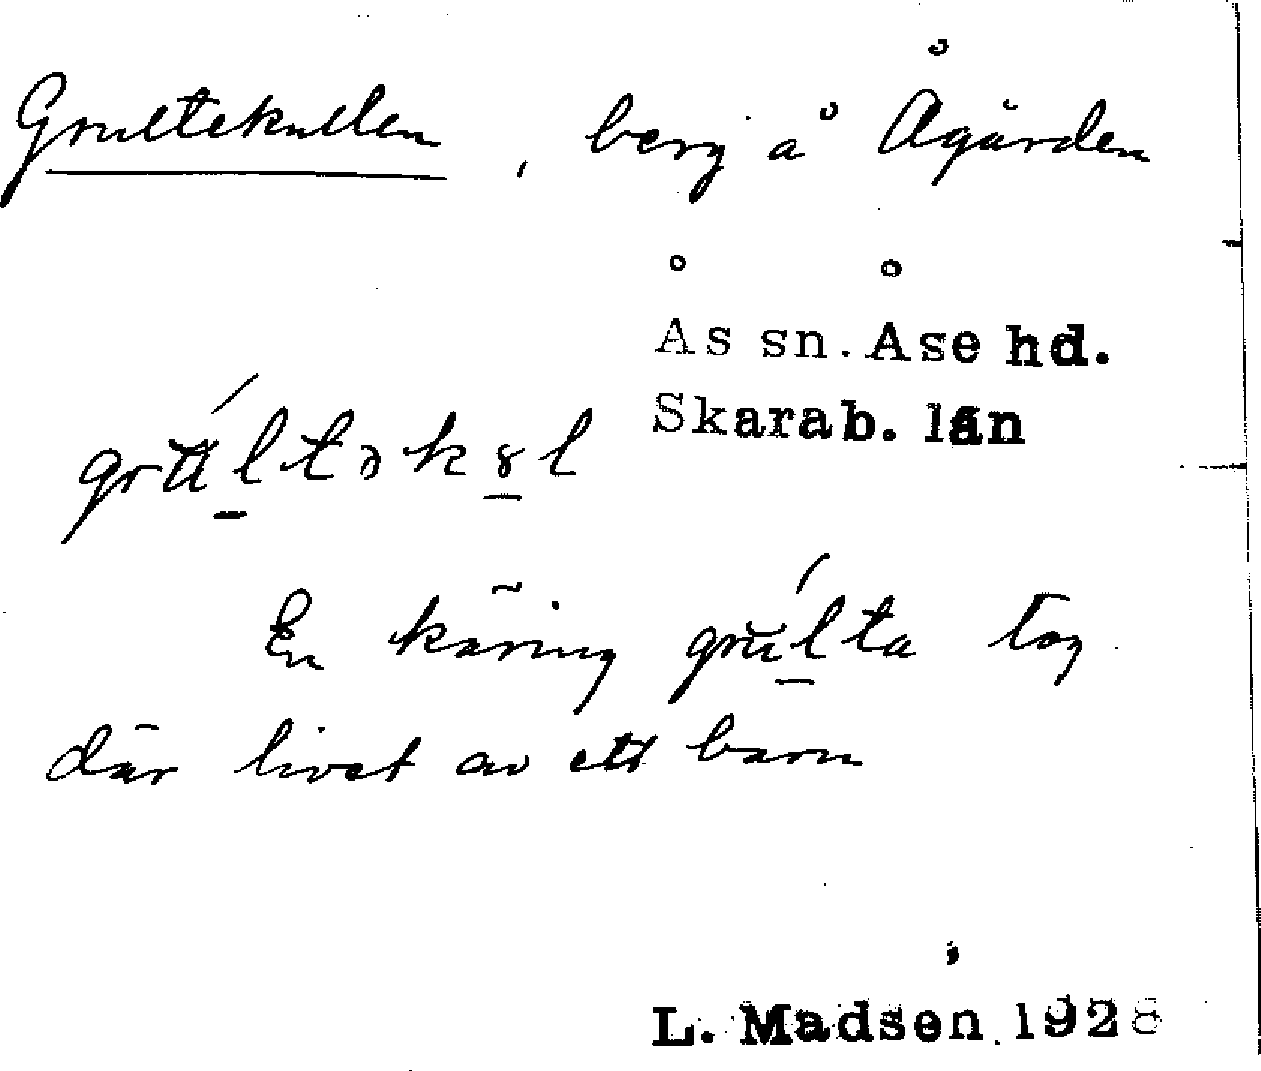 Grultekullen, berg å Ågården
Ås sn. Åse hd.
Skarab. län
grúltəkɤl
En käring grúlta tog
där livet av ett barn
L. Madsen 1928